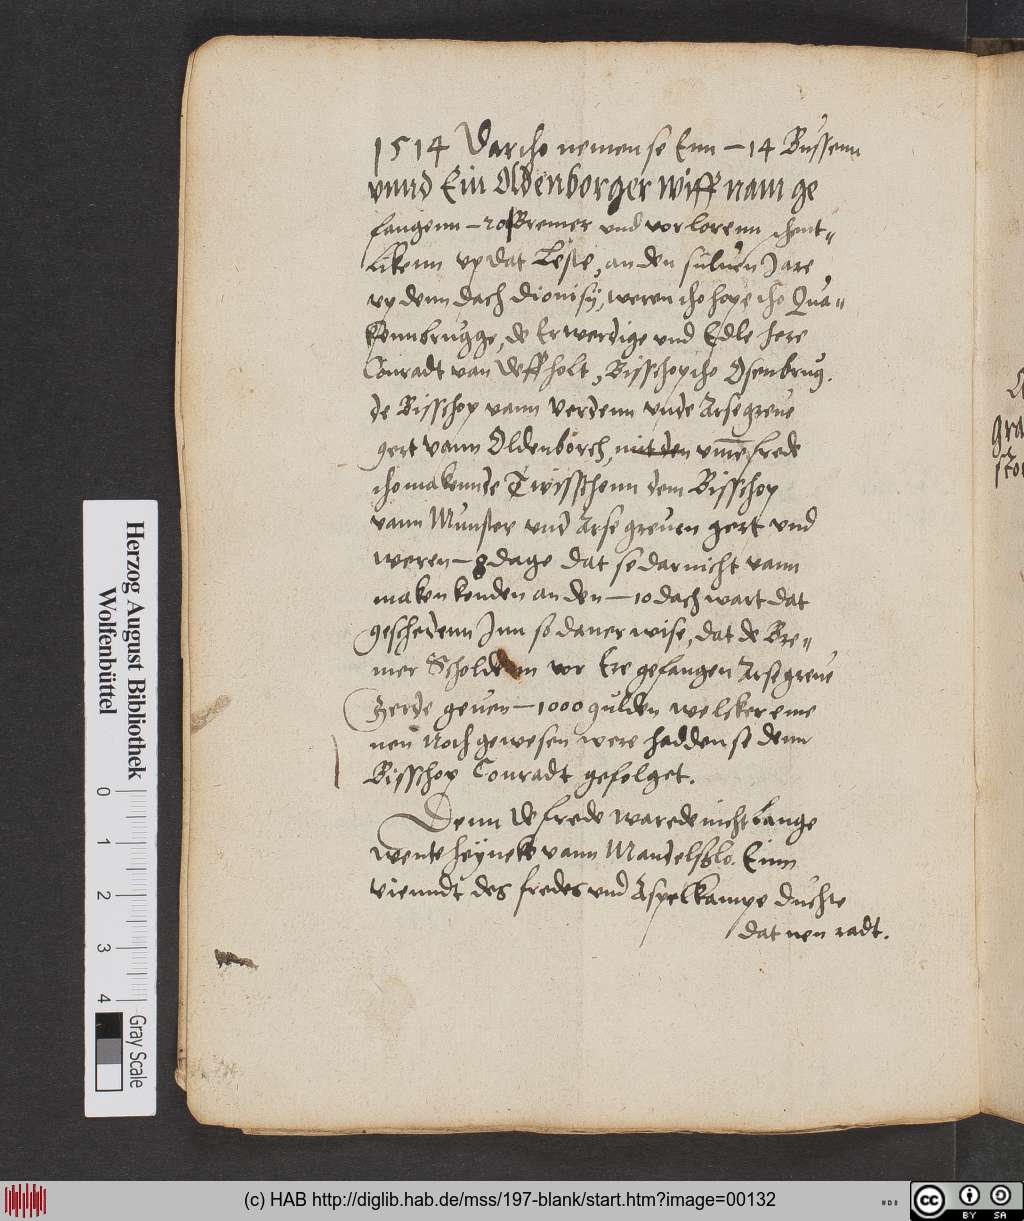 1514 Dartho nemen se Enn – 14 Bussenn
vnnd Ein Oldenborger wiff nam ge
fangenn – 20 Bremer vnd vorlorenn schent=
likenn vp dat Leste, an den suluen Jare
vp denn dach dionisÿ, weren tho hope tho Qua=
kennbrugge, de Erwerdige vnd Edle here
Conradt van deffholt, Bisschop tho Osenbrug.
de Bisschop vann Verdenn vnde Arsegreue
gert vann Oldenborch, mit den vmē frede
tho makennde Twisschenn dem Bisschop
vann Munster vnd Arsegreuen gert vnd
weren – 8 dage dat se dar nicht vann
maken konden an den – 10 dach wart dat
geschedenn Jnn sodaner wise, dat de Bre=
mer Scholdenn vor Ere gefangen Arsegreue
Gerde geuen – 1000 gulden welcker eme
nen Noch gewesen were hadden se denn
Bisschop Conradt gefolget.
Denn de frede warede nicht lange
wente heyneke vann Mandelsslo. Einn
vienndt des fredes vnd Aspelkampe duchte
dat nen radt.
gra
Herzog August Bibliothek
Wolfenbüttel
0 1 2 3 4
Gray Scale
(c) HAB http://diglib.hab.de/mss/197-blank/start.htm?image=00132
cc BY SA